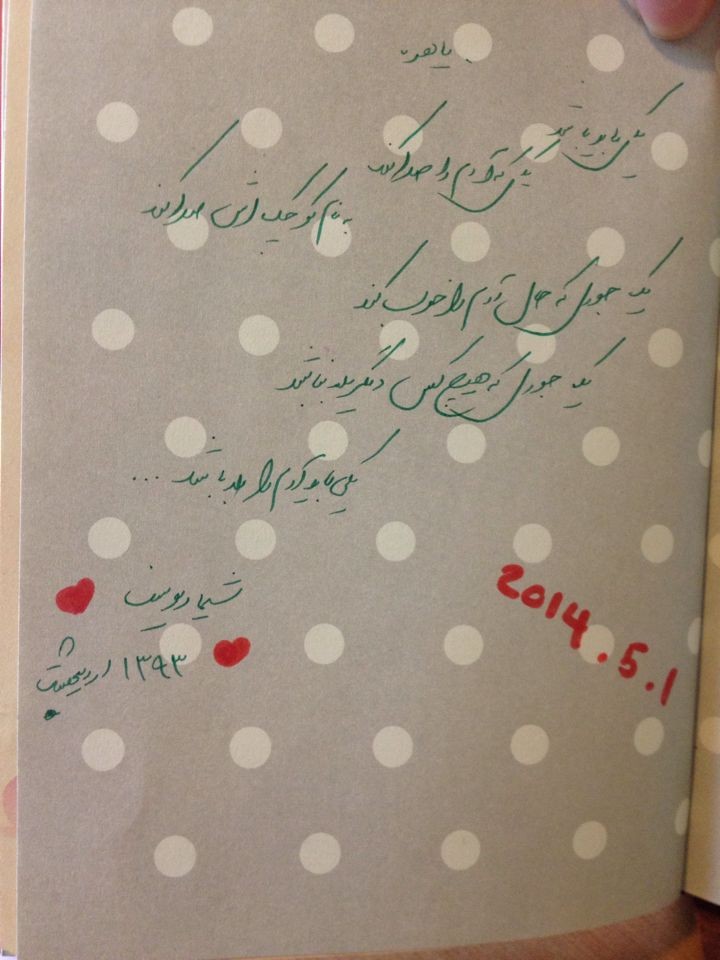 یا هو
یکی باید باشد
یکی که آدم را صدا کند
به نام کوچک اش صدا کند
یک جوری که حال آدم را خوب کند
یک جوری که هیچ کس دیگر بلد نباشد
یکی باید آدم را بلد باشد ...
شیما و یوسف
۱۳۹۳ اردیبهشت
2014.5.1